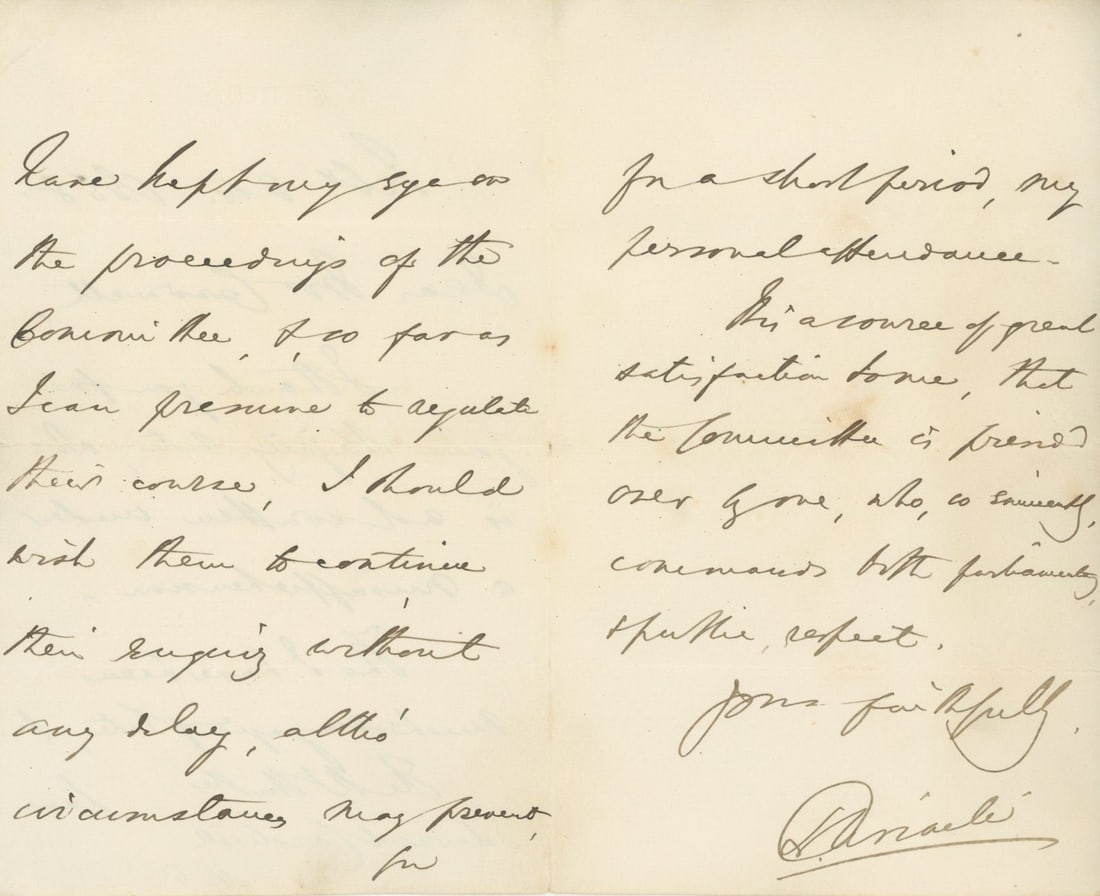 have kept my eye on
the proceedings of the
Committee, & so far as
I can presume to regulate
their course, I should
wish them to continue
their enquiry without
any delay, altho'
circumstances may prevent,
for
for a short period, my
personal attendance.
It is a source of great
satisfaction to me, that
the Committee is presided
over by one, who, so eminently,
commands both parliamentary,
& public, respect.
Yours faithfully,
B. Disraeli